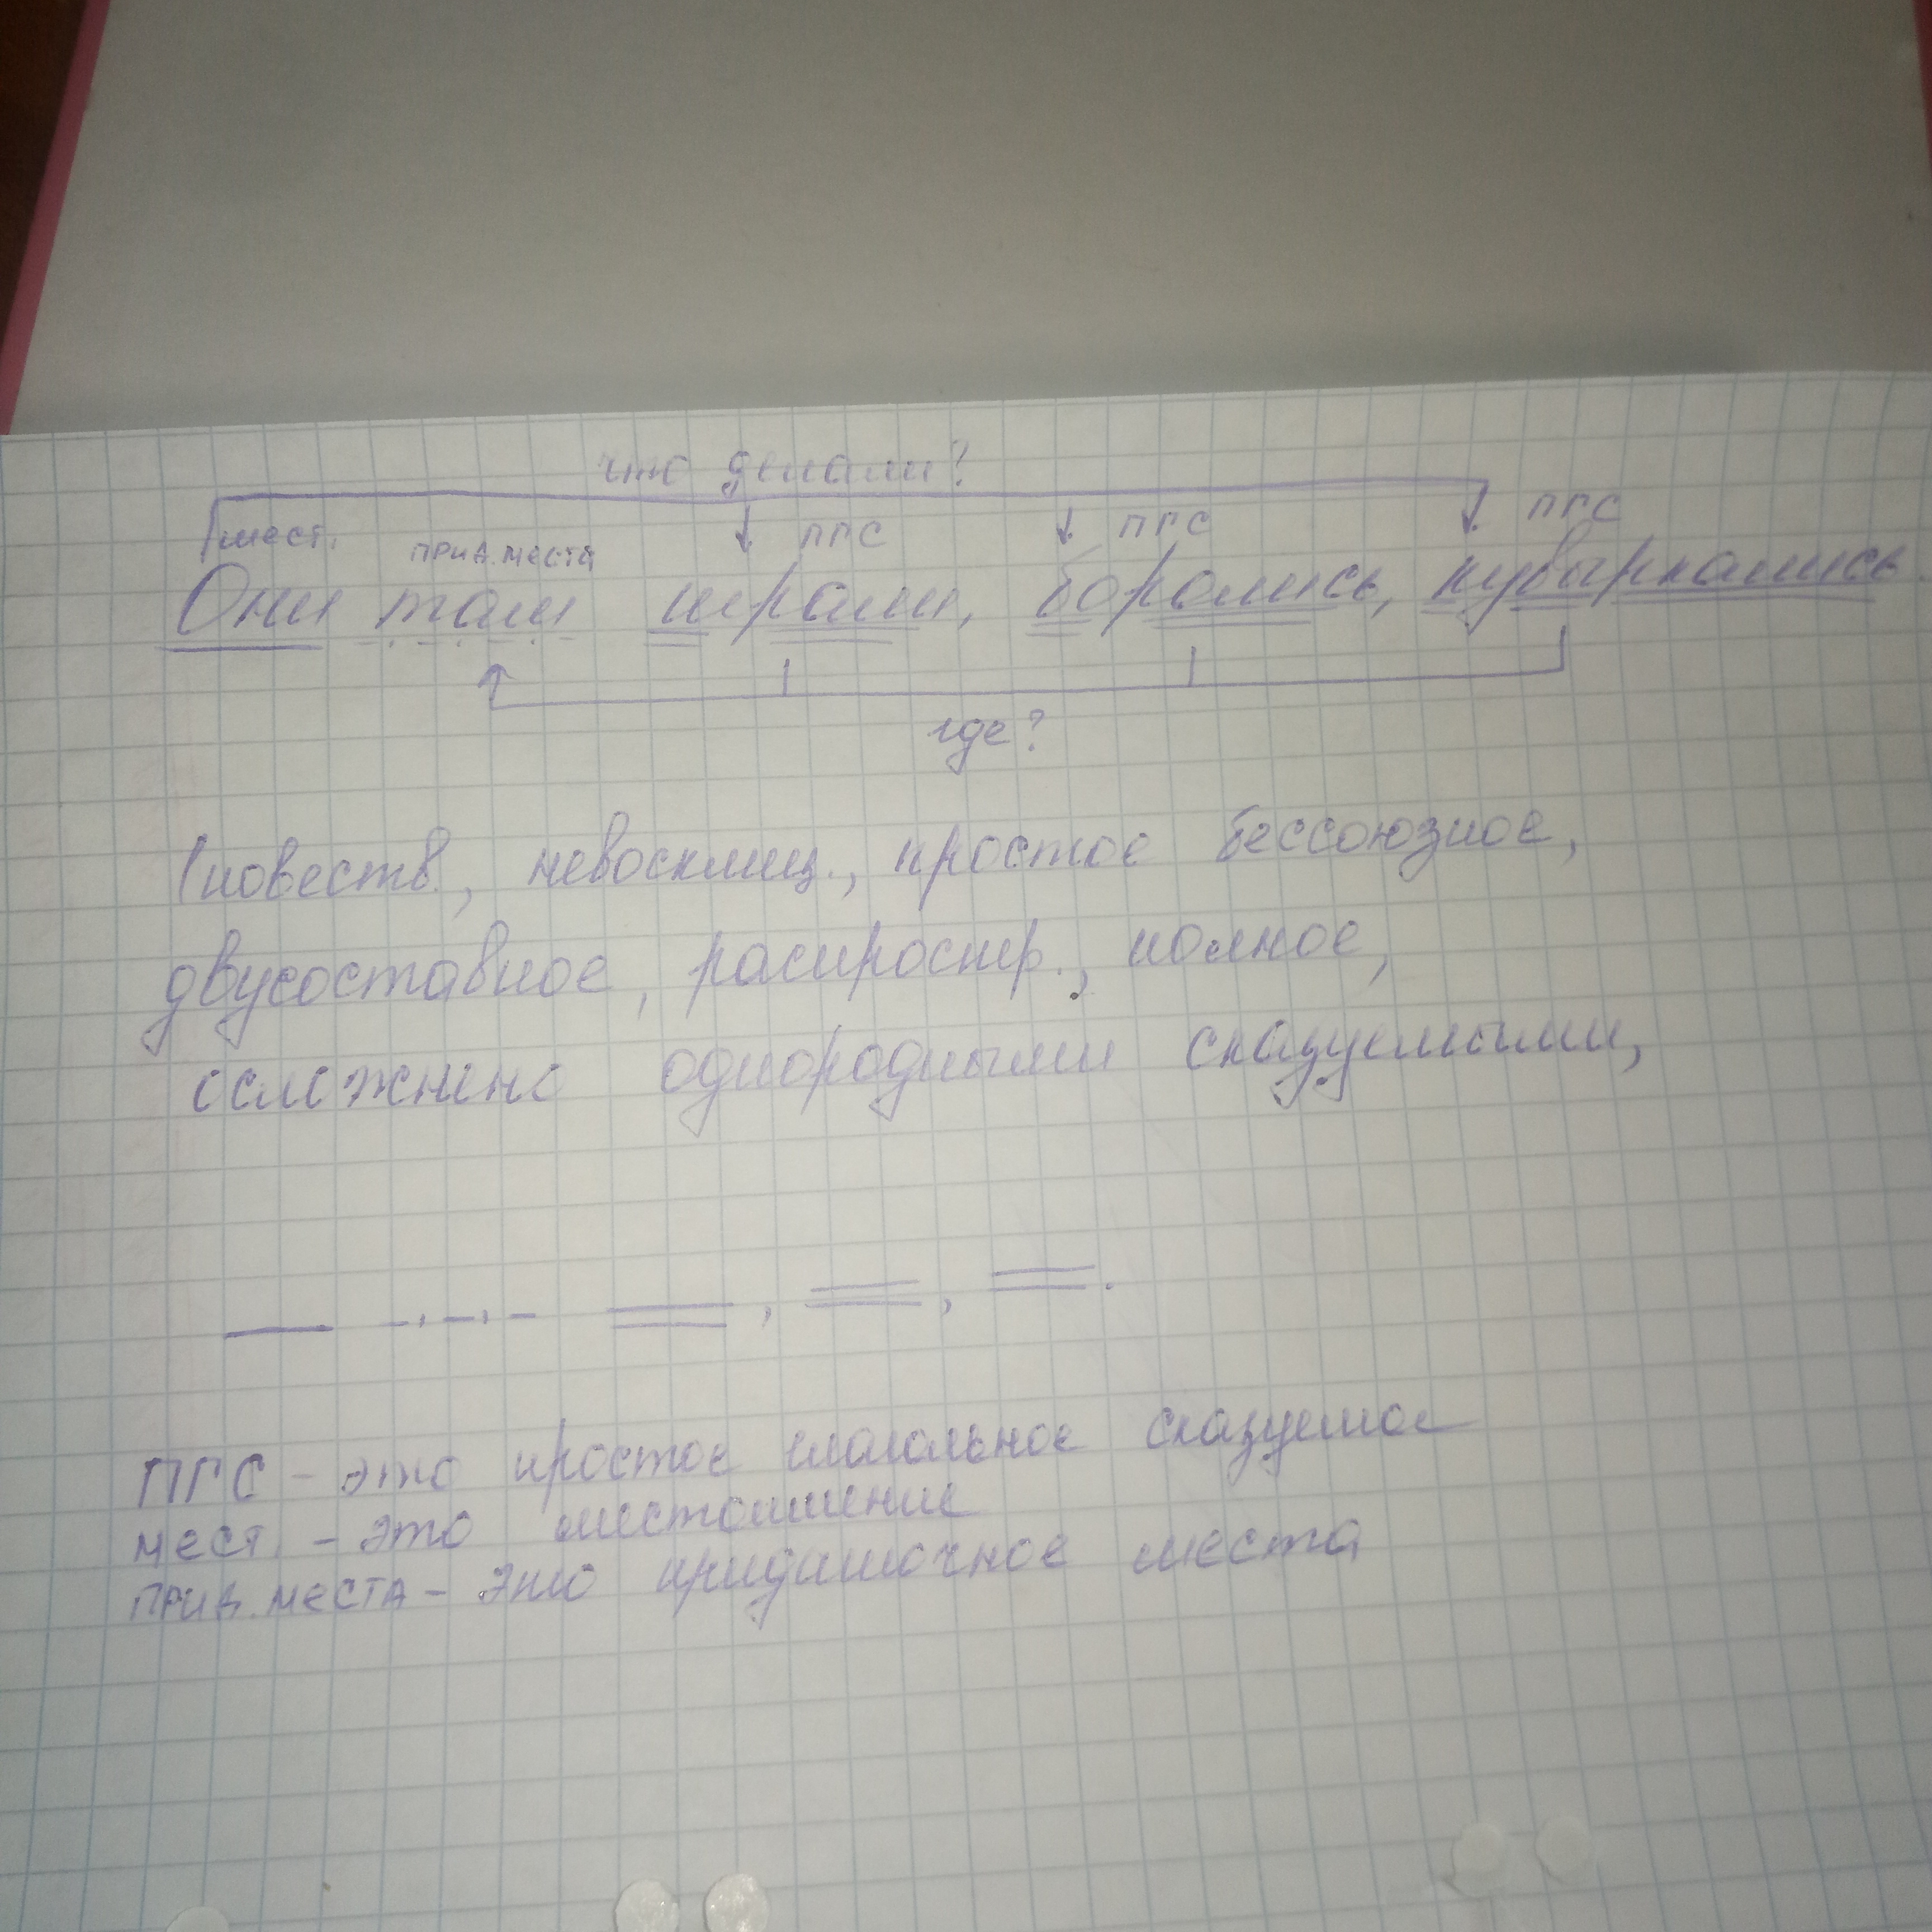 что делали?
мест. прид. места ПГС ПГС ПГС
Они там играли, боролись, кувыркались
где?
(повеств., невосклиц., простое бессоюзное,
двусоставное, распростр., полное,
осложнено однородными сказуемыми,
ПГС - это простое глагольное сказуемое
мест. - это местоимение
прид. места - это придаточное места